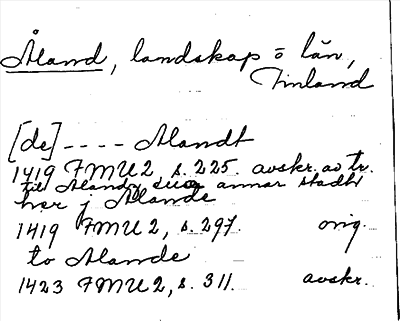 Åland, landskap o län,
Finland
[de] ---- Alandt
1419 FMU 2, s. 225. avskr. av tr.
til Aland, annar stadh
her j Alande
1419 FMU 2, s. 297. orig.
to Alande
1423 FMU 2, s. 311. avskr.